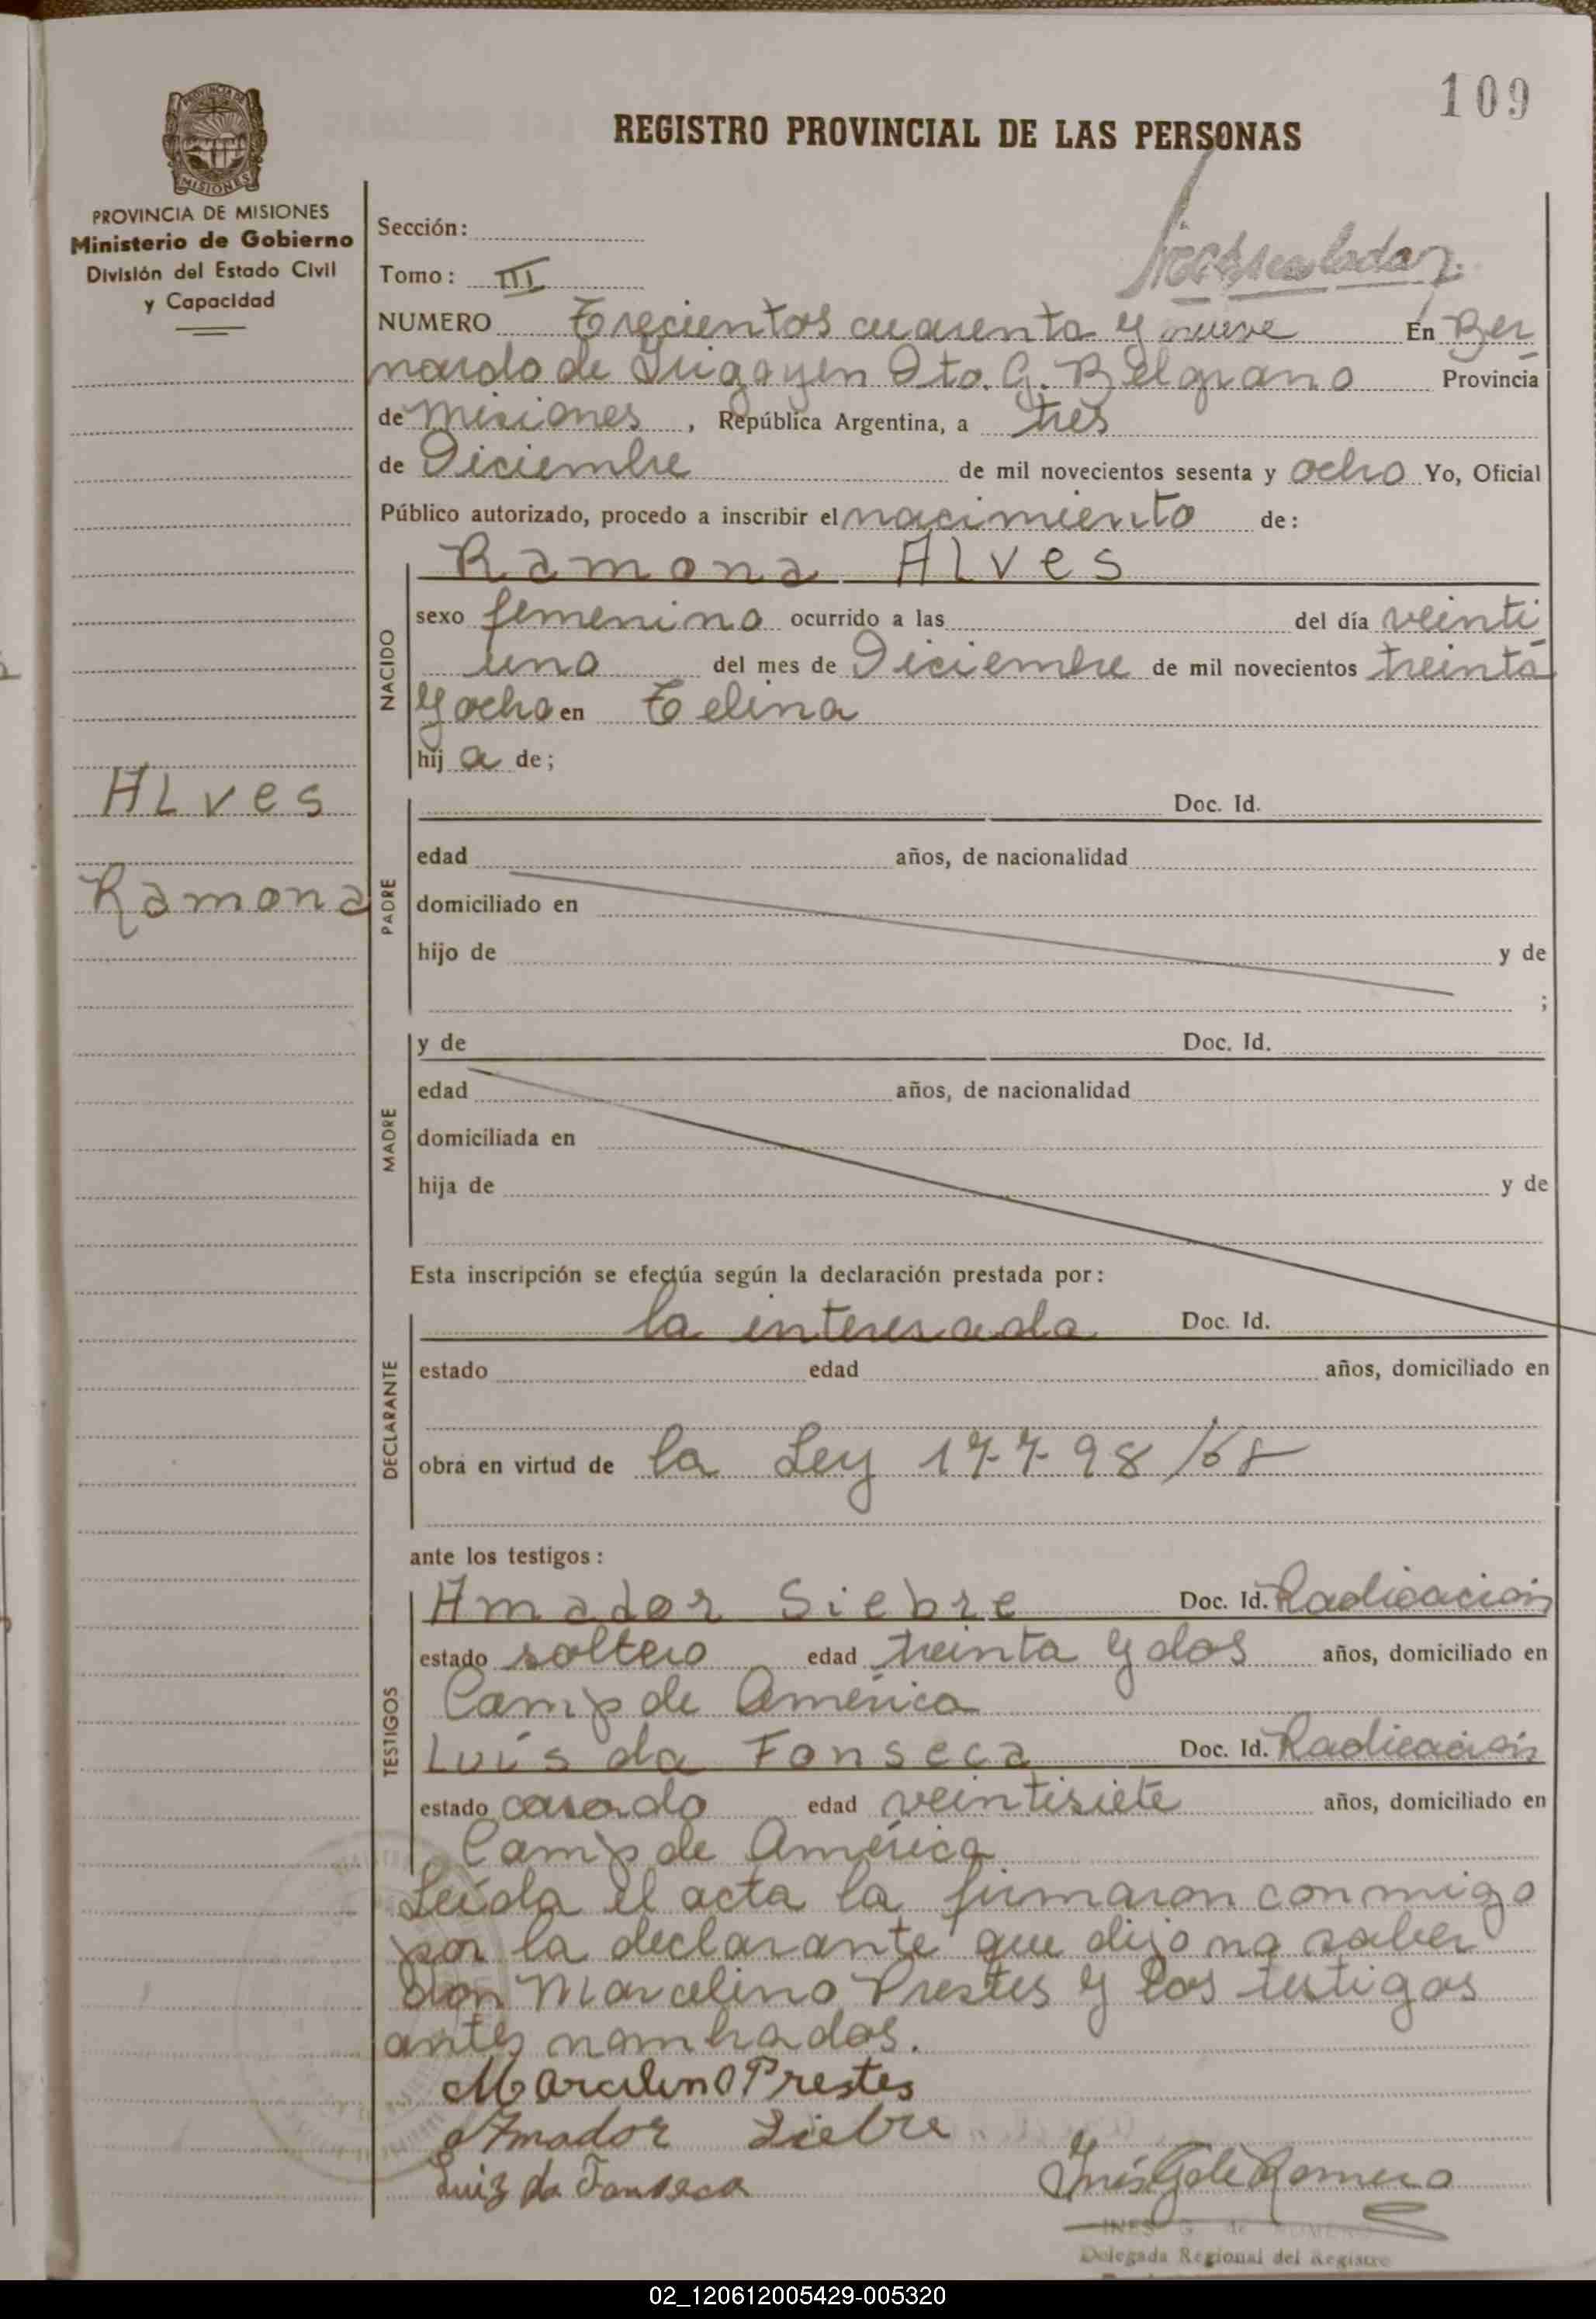 109
REGISTRO PROVINCIAL DE LAS PERSONAS
MISIONES
PROVINCIA DE MISIONES
Ministerio de Gobierno
División del Estado Civil
y Capacidad
Sección:
Tomo: III
NUMERO Trecientos cuarenta y nueve En Ber
nardo de Irigoyen Dto. G. Belgrano Provincia
de Misiones, República Argentina, a tres
de Diciembre de mil novecientos sesenta y ocho Yo, Oficial
Público autorizado, procedo a inscribir el nacimiento de:
Ramona Alves
NACIDO
sexo femenino ocurrido a las del día veinti
uno del mes de Diciembre de mil novecientos treinta
y ocho en Celina
hij a de;
ALves
Ramona
PADRE
Doc. Id.
edad años, de nacionalidad
domiciliado en
hijo de y de
;
MADRE
y de Doc. Id.
edad años, de nacionalidad
domiciliada en
hija de y de
Esta inscripción se efectúa según la declaración prestada por:
DECLARANTE
la interesada Doc. Id.
estado edad años, domiciliado en
obra en virtud de la Ley 17798/68
ante los testigos:
TESTIGOS
Amador Siebre Doc. Id. Radicación
estado soltero edad treinta y dos años, domiciliado en
Camp de América
Luis da Fonseca Doc. Id. Radicación
estado casado edad veintisiete años, domiciliado en
Camp de América
Leída el acta la firmaron conmigo
por la declarante que dijo no saber
Don Marcelino Prestes y los testigos
antes nombrados.
Marcelino Prestes
Amador Siebre
Luiz da Fonseca
Inés G de Romero
INES G. de ROMERO
Delegada Regional del Registro
02_120612005429-005320